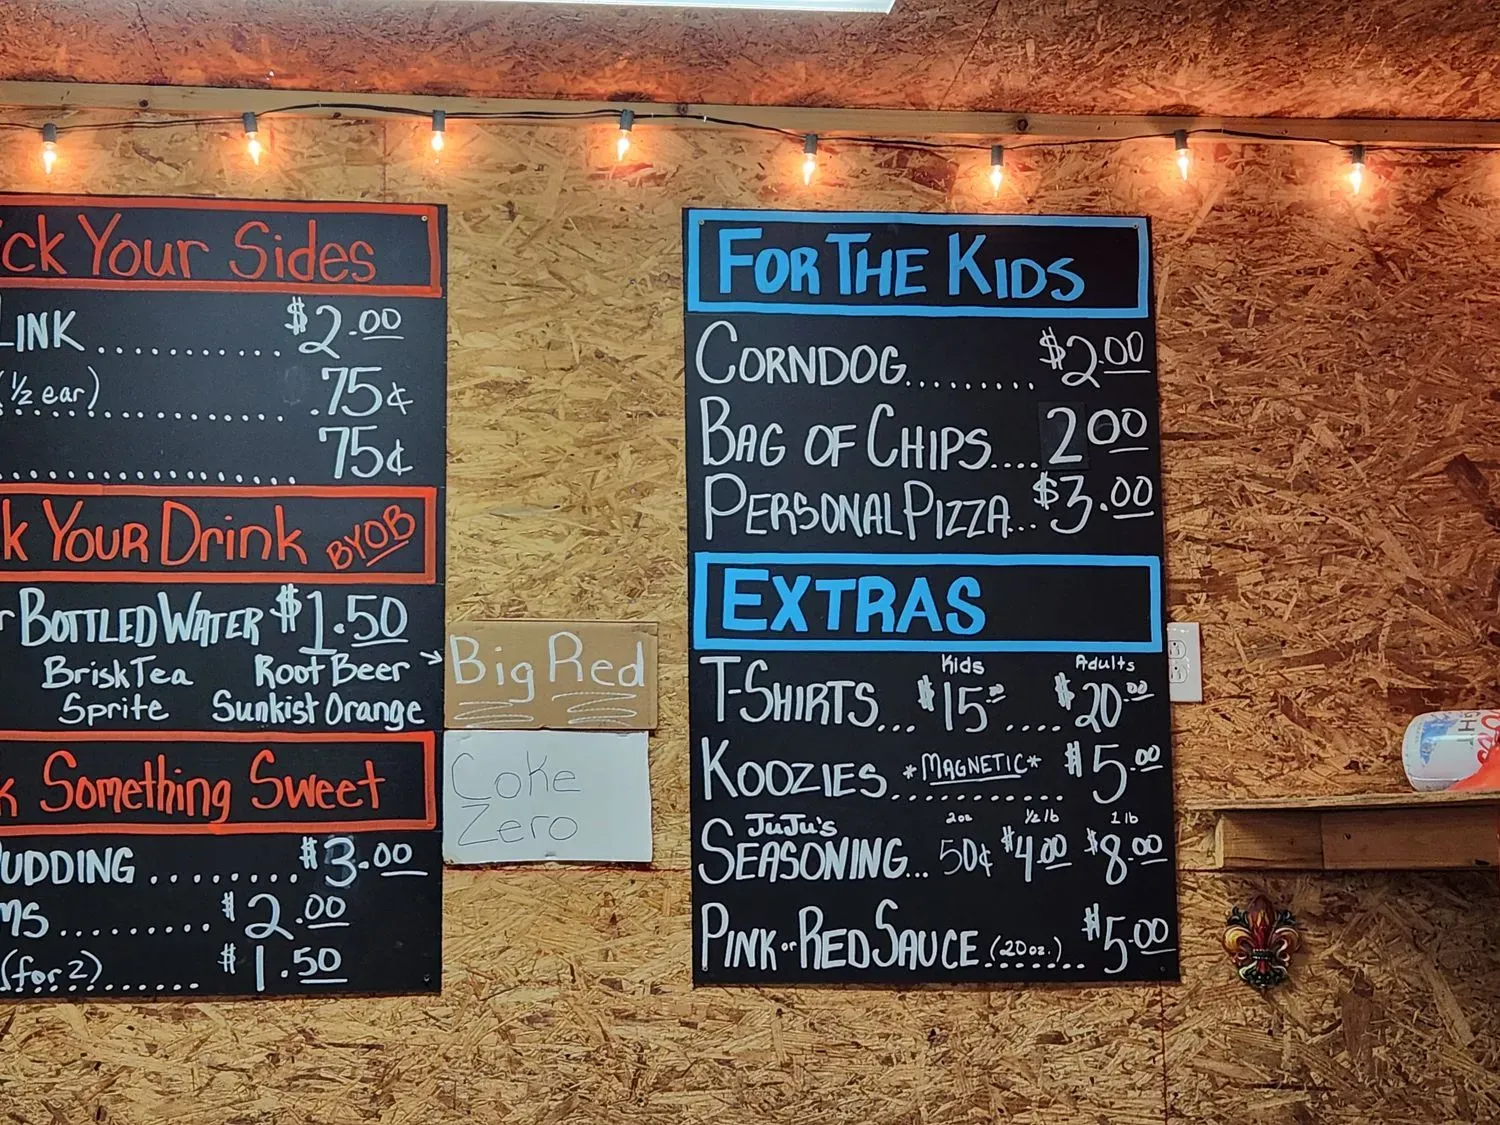 ck Your Sides
Link ........... $2.00
(½ ear) .................. .75¢
.................... 75¢
k Your Drink BYOB
r Bottled Water $1.50
Brisk Tea Root Beer →
Sprite Sunkist Orange
Big Red
Coke
Zero
k Something Sweet
udding ........ $3.00
ms ........... $2.00
(for 2) ............ $1.50
For The Kids
Corndog ......... $2.00
Bag of Chips .... 2.00
Personal Pizza... $3.00
Extras
Kids Adults
T-Shirts ... $15.00 .... $20.00
Koozies *Magnetic* ........... $5.00
JuJu's 2oz ½ lb 1 lb
Seasoning... 50¢ $4.00 $8.00
Pink or Red Sauce (20oz.) ....... $5.00